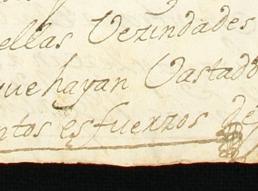 ellas Vezindades
que hayan Vastado
ntos esfuerzos de